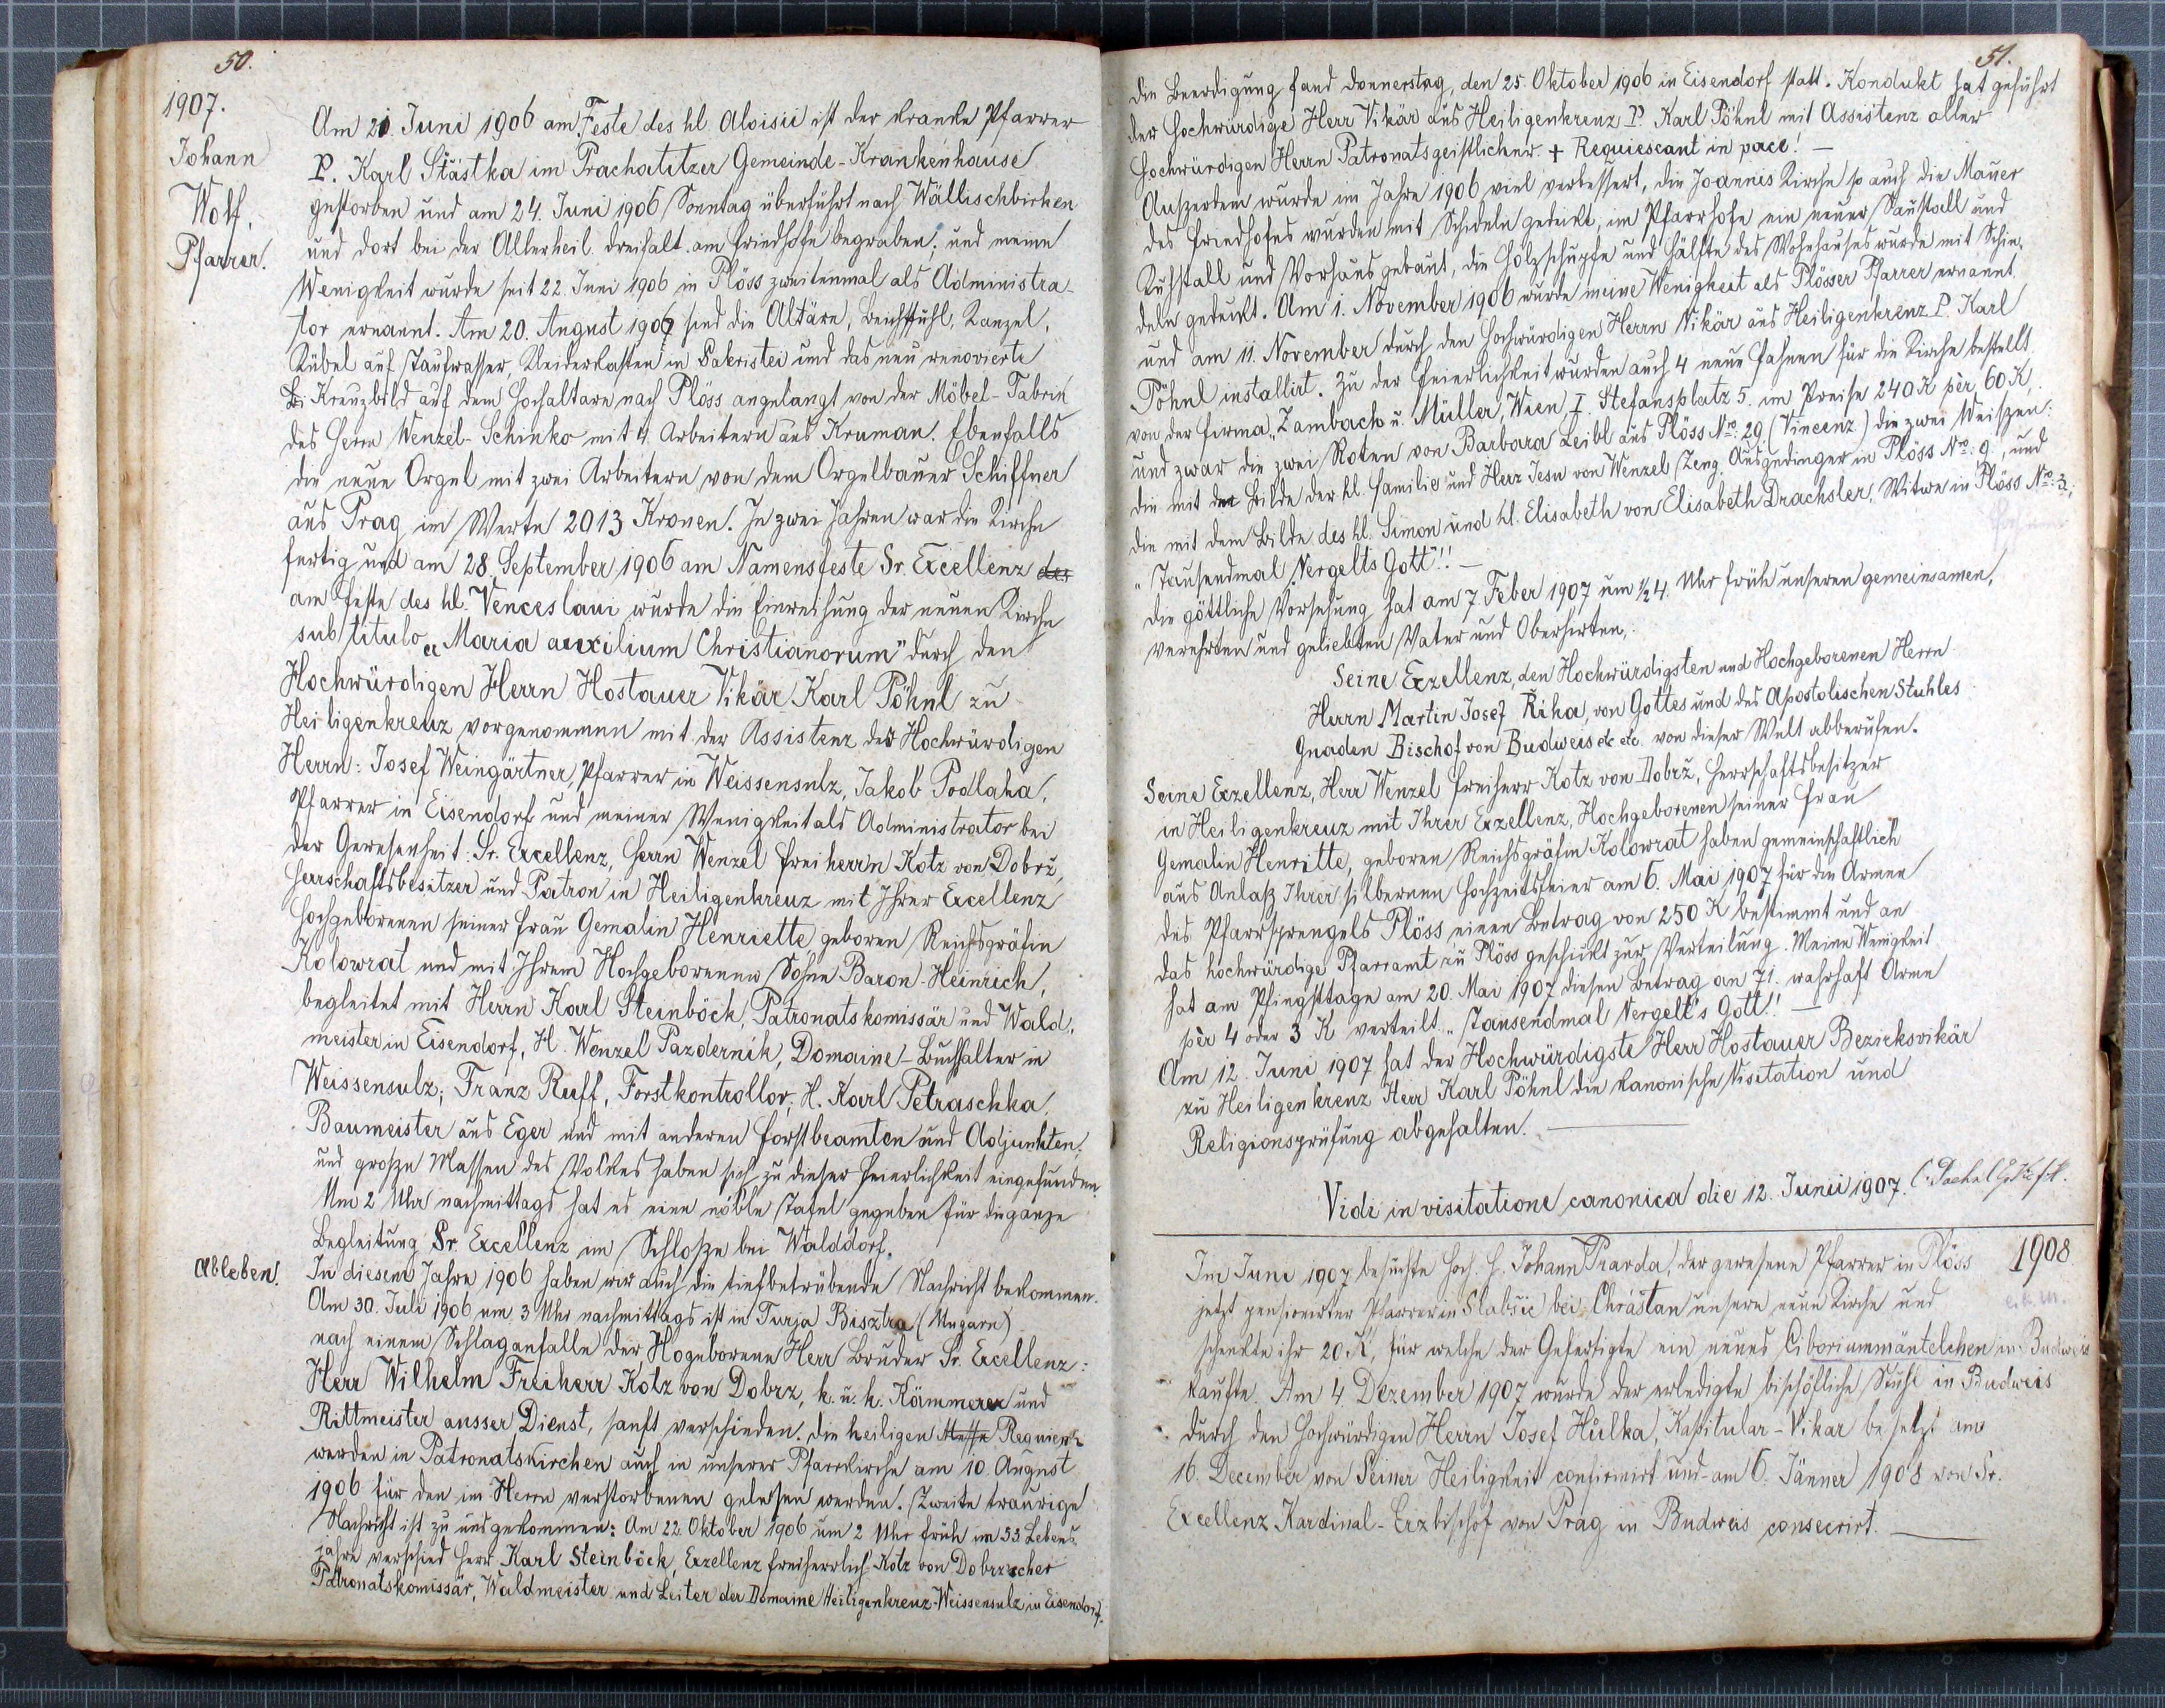 50.
1907.
Johann
Wolf,
Pfarrer.
Am 21. Juni 1906 am Feste des hl. Aloisii ist der kranke Pfarrer
P. Karl Šťástka im Prachatitzer Gemeinde-Krankenhause
gestorben und am 24. Juni 1906 Sonntag überführt nach Wällischbirken
und dort bei der Allerheil. dreifalt. am Friedhofe begraben; und meine
Wenigkeit wurde seit 22. Juni 1906 in Plöss zweitenmal als Administra-
tor ernannt. Am 20. August 1906 sind die Altäre, Beichtstuhl, Kanzel,
Kübel auf Taufwasser, Kleiderkasten in Sakristei und das neu renovierte
Kreuzbild auf dem Hochaltare nach Plöss angelangt von der Möbel-Fabrik
des Herrn Wenzel Schinko mit 4 Arbeitern aus Kruman. Ebenfalls
die neue Orgel mit zwei Arbeitern von dem Orgelbauer Schiffner
aus Prag im Werte 2013 Kronen. In zwei Jahren war die Kirche
fertig und am 28. September 1906 am Namensfeste Sr. Excellenz des
am Feste des hl. Venceslaui wurde die Einweihung der neuen Kirche
sub titulo „Maria auxilium Christianorum" durch den
Hochwürdigen Herrn Hostauer Vikär Karl Pöhnl zu
Heiligenkreuz vorgenommen mit der Assistenz des Hochwürdigen
Herrn: Josef Weingärtner, Pfarrer in Weissensulz, Jakob Podlaha,
Pfarrer in Eisendorf und meiner Wenigkeit als Administrator bei
der Gewesenheit: Sr. Excellenz, Herrn Wenzel Freiherrn Kotz von Dobrž,
Herrschaftsbesitzer und Patron in Heiligenkreuz mit Ihrer Excellenz
Hochgeborenen seiner Frau Gemalin Henriette geboren Reichsgräfin
Kolowrat und mit Ihrem Hochgeborenen Sohne Baron Heinrich,
begleitet mit Herrn Karl Steinböck, Patronatskomissär und Wald-
meister in Eisendorf, H. Wenzel Pazderník, Domaine-Buchhalter in
Weissensulz; Franz Ruff, Forstkontrollor, H. Karl Petraschka,
Baumeister aus Eger und mit anderen Forstbeamten und Adjunkten,
und große Massen des Volkes haben sich zu dieser Feierlichkeit eingefunden.
Um 2 Uhr nachmittags hat es eine nóble Tafel gegeben für die ganze
Begleitung Sr. Excellenz im Schloße bei Walddorf.
Ableben!
In diesem Jahre 1906 haben wir auch die tiefbetrübende Nachricht bekommen.
Am 30. Juli 1906 um 3 Uhr nachmittags ist in Turja Bisztra (Ungarn)
nach einem Schlaganfalle der Hogeborene Herr Bruder Sr. Excellenz:
Herr Wilhelm Freiherr Kotz von Dobrz, k. u. k. Kämmerer und
Rittmeister ausser Dienst, sanft verschieden. Die heiligen Messe Requien
werden in Patronatskirchen auch in unserer Pfarrkirche am 10. August
1906 für den im Herrn verstorbenen gelesen werden. Zweite traurige
Nachricht ist zu uns gekommen: Am 22. Oktober 1906 um 2 Uhr früh im 53 Lebens-
jahre verschied Herr Karl Steinböck, Exzellenz freiherrlich Kotz von Dobrz'scher
Patronatskomissär, Waldmeister und Leiter der Domaine Heiligenkreuz-Weissensulz in Eisendorf.
51.
Die Beerdigung fand Donnerstag, den 25. Oktober 1906 in Eisendorf statt. Kondukt hat geführt
der Hochwürdige Herr Vikär aus Heiligenkreuz P. Karl Pöhnl mit Assistenz aller
Hochwürdigen Herrn Patronatsgeistlicher. + Requiescant in pace! —
Auszerdem wurde im Jahre 1906 viel verbessert, die Joannes Kirche so auch die Mauer
des Friedhofes wurden mit Schideln gedeckt, im Pfarrhofe ein neuer Saustall und
Kuhstall und Vorhaus gebaut, die Holzschupfe und Hälfte des Wohnhauses wurde mit Schin-
deln gedeckt. Am 1. November 1906 wurde meine Wenigkeit als Plösser Pfarrer ernannt
und am 11. November durch den Hochwürdigen Herrn Vikär aus Heiligenkrenz P. Karl
Pöhnl installirt. Zu der Feierlichkeit wurden auch 4 neue Fahnen für die Kirche bestellt
von der Firma „Zambach u. Müller, Wien, I. Stefansplatz 5. im Preise 240 K pèr 60 K,
und zwar die zwei Roten von Barbara Leibl aus Plöss Nro. 29. (Vincenz) die zwei Weiszen:
die mit dem Bilde der hl. Familie und Herz Jesu von Wenzel Zeug, Ausgedinger in Plöss Nro. 9., und
die mit dem Bilde des hl. Simon und hl. Elisabeth von Elisabeth Drachsler, Witwe in Plöss Nro. 3.;
„Tausendmal Vergelts Gott"!! —
Die göttliche Vorsehung hat am 7. Feber 1907 um ½ 4. Uhr früh unseren gemeinsamen,
verehrten und geliebten Vater und Oberhirten,
Seine Exzellenz, den Hochwürdigsten und Hochgeborenen Herrn
Herrn Martin Josef Řiha, von Gottes und des Apostolischen Stuhles
Gnaden Bischof von Budweis etc etc. von dieser Welt abberufen.
Seine Exzellenz, Herr Wenzel Freiherr Kotz von Dobrž, Herrschaftsbesitzer
in Heiligenkreuz mit Ihrer Exzellenz, Hochgeborenen seiner Frau
Gemalin Henritte, geboren Reichsgräfin Kolowrat haben gemeinschaftlich
aus Anlaß Ihrer silbernen Hochzeitsfeier am 6. Mai 1907 für die Armen
des Pfarrsprengels Plöss einen Betrag von 250 K bestimmt und an
das hochwürdige Pfarramt zu Plöss geschickt zur Verteilung. Meine Wenigkeit
hat am Pfingsttage am 20. Mai 1907 diesen Betrag an 71. wahrhaft Arme
pèr 4 oder 3 K verteilt. „Tausendmal Vergelt's Gott"! —
Am 12. Juni 1907 hat der Hochwürdigste Herr Hostauer Bezirksvikär
zu Heiligenkrenz Herr Karl Pöhnl die kanonische Visitation und
Religionsprüfung abgehalten. —
Vidi in visitatione canonica die 12. Junii 1907.
1908
Im Juni 1907 besuchte Hoch. H. Johann Pravda, der gewesene Pfarrer in Plöss
jetzt pensionirter Pfarrer in Slabšic bei Chrástan unsere neue Kirche und
schenkte ihr 20 K, für welche der Gefertigte ein neues Ciboriummäntelchen in Budweis
kaufte. Am 4. Dezember 1907 wurde der erledigte bischöfliche Stuhl in Budweis
durch den Hochwürdigen Herrn Josef Hůlka, Kapitular-Vikar besetzt am
16. December von Seiner Heiligkeit confirmirt und am 6. Jänner 1908 von Sr.
Excellenz Kardinal-Erzbischof von Prag in Budweis consecrirt. —